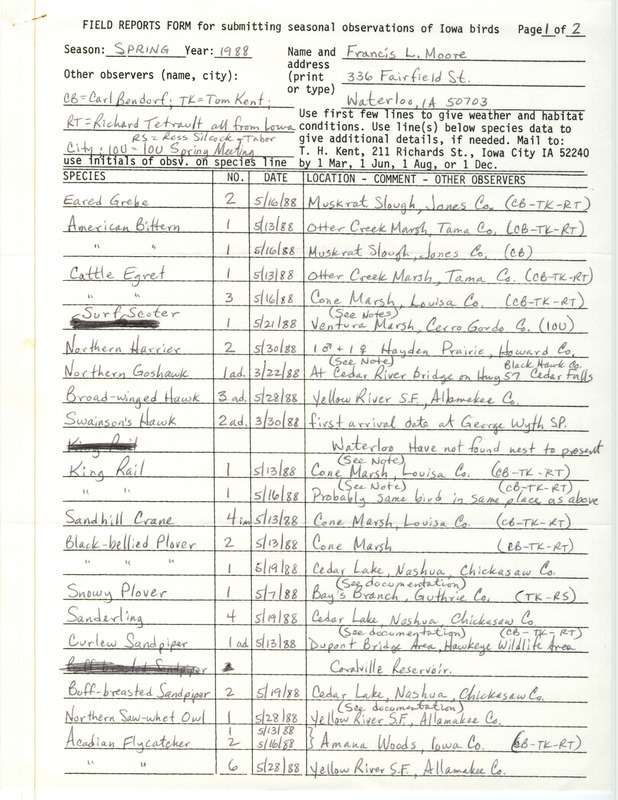 FIELD REPORTS FORM for submitting seasonal observations of Iowa birds Page 1 of 2
Season: SPRING Year: 1988 Name and Francis L. Moore
address
Other observers (name, city): (print 336 Fairfield St.
or type)
CB=Carl Bendorf; TK=Tom Kent; Waterloo, IA 50703
RT=Richard Tetrault all from Iowa
RS=Ross Silcock-Tabor
City; IOU-IOU Spring Meeting
use initials of obsv. on species line
Use first few lines to give weather and habitat
conditions. Use line(s) below species data to
give additional details, if needed. Mail to:
T. H. Kent, 211 Richards St., Iowa City IA 52240
by 1 Mar, 1 Jun, 1 Aug, or 1 Dec.
SPECIES NO. DATE LOCATION - COMMENT - OTHER OBSERVERS
Eared Grebe 2 5/16/88 Muskrat Slough, Jones Co. (CB-TK-RT)
American Bittern 1 5/13/88 Otter Creek Marsh, Tama Co. (CB-TK-RT)
" " 1 5/16/88 Muskrat Slough, Jones Co. (CB)
Cattle Egret 1 5/13/88 Otter Creek Marsh, Tama Co. (CB-TK-RT)
" " 3 5/16/88 Cone Marsh, Louisa Co. (CB-TK-RT)
(See Notes)
Surf Scoter 1 5/21/88 Ventura Marsh, Cerro Gordo Co. (IOU)
Northern Harrier 2 5/30/88 1♂+1♀ Hayden Prairie, Howard Co.
(See Note) Black Hawk Co.
Northern Goshawk 1ad. 3/22/88 At Cedar River bridge on Hwy 57 Cedar Falls
Broad-winged Hawk 3 ad. 5/28/88 Yellow River S.F., Allamakee Co.
Swainson's Hawk 2ad. 3/30/88 first arrival date at George Wyth SP.
King Rail Waterloo Have not found nest to present
(See Note)
King Rail 1 5/13/88 Cone Marsh, Louisa Co. (CB-TK-RT)
(See Note) (CB-TK-RT)
" " 1 5/16/88 Probably same bird in same place as above
Sandhill Crane 4 im 5/13/88 Cone Marsh, Louisa Co. (CB-TK-RT)
Black-bellied Plover 2 5/13/88 Cone Marsh (CB-TK-RT)
" " 1 5/19/88 Cedar Lake, Nashua, Chickasaw Co.
(See documentation)
Snowy Plover 1 5/7/88 Bay's Branch, Guthrie Co. (TK-RS)
Sanderling 4 5/19/88 Cedar Lake, Nashua, Chickasaw Co.
(See documentation) (CB-TK-RT)
Curlew Sandpiper 1 ad 5/13/88 Dupont Bridge Area, Hawkeye Wildlife Area
Buff-breasted Sandpiper Coralville Reservoir.
Buff-breasted Sandpiper 2 5/19/88 Cedar Lake, Nashua, Chickasaw Co.
(See documentation)
Northern Saw-whet Owl 1 5/28/88 Yellow River S.F., Allamakee Co.
1 5/13/88
Acadian Flycatcher 2 5/16/88 } Amana Woods, Iowa Co. (CB-TK-RT)
" " 6 5/28/88 Yellow River S.F., Allamakee Co.